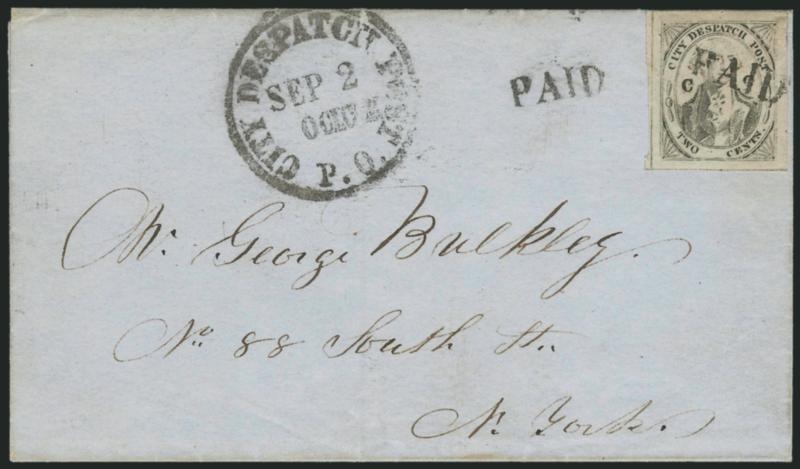 CITY DESPATCH POST P.O.
SEP 2
PAID
CITY DESPATCH POST
PAID
C
TWO CENTS
Mr. George Bulkley.
No. 88 South St.
N. York.